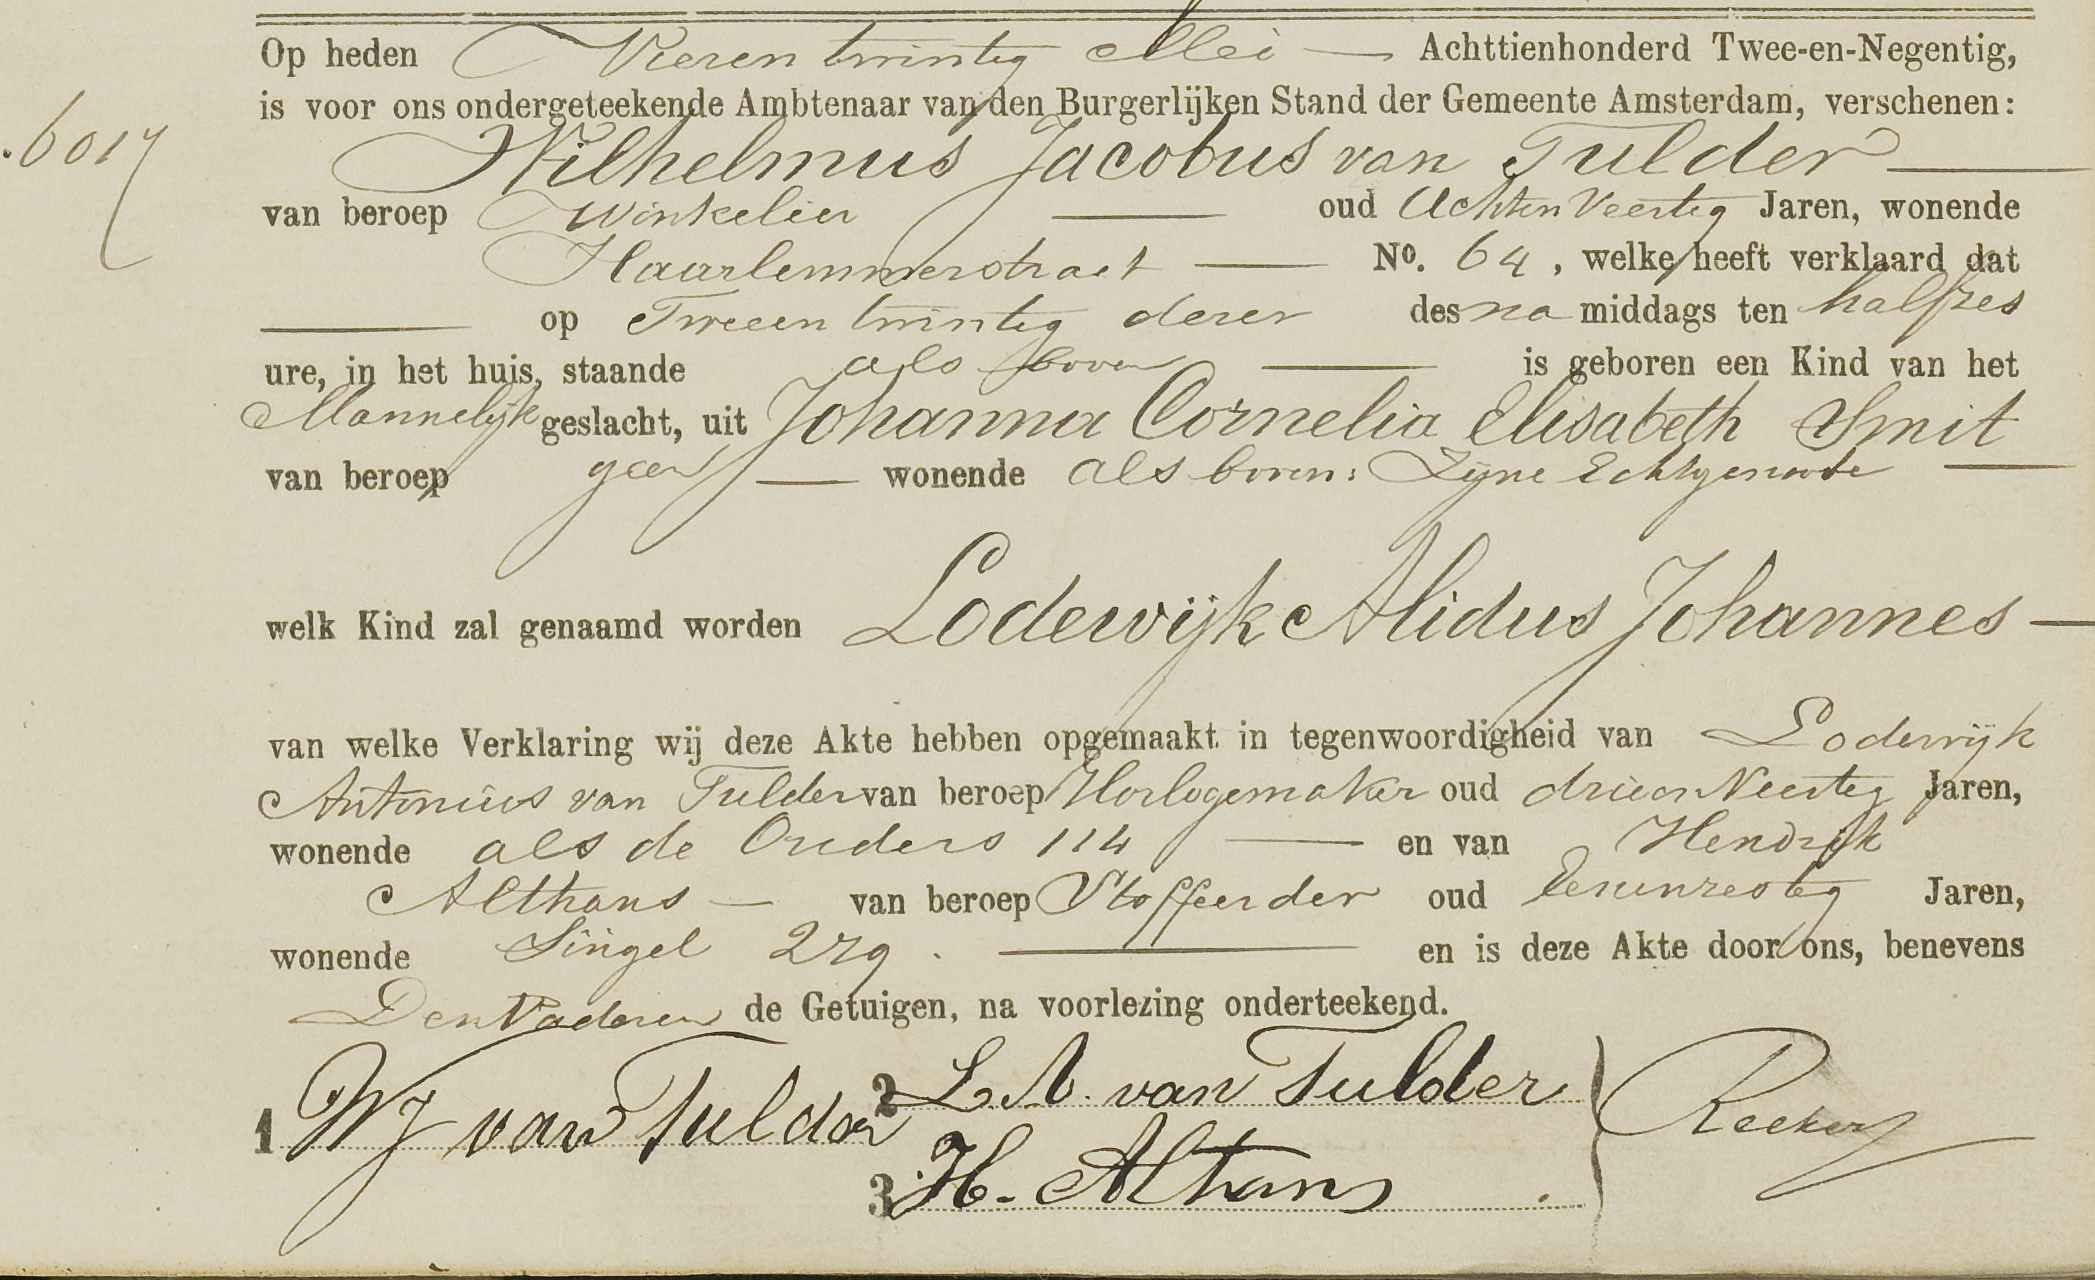 Op heden Vierentwintig Mei — Achttienhonderd Twee-en-Negentig,
is voor ons ondergeteekende Ambtenaar van den Burgerlijken Stand der Gemeente Amsterdam, verschenen:
.6017
Wilhelmus Jacobus van Tulder —
van beroep Winkelier — oud Achten Veertig Jaren, wonende
Haarlemmerstraat — No. 64, welke heeft verklaard dat
— op Tweeen twintig dezer des na middags ten halfzes
ure, in het huis, staande als boven — is geboren een Kind van het
Mannelijk geslacht, uit Johanna Cornelia Elisabeth Smit
van beroep geen — wonende als boven: Zijne Echtgenoote —
welk Kind zal genaamd worden Lodewijk Alidus Johannes —
van welke Verklaring wij deze Akte hebben opgemaakt in tegenwoordigheid van Lodewijk
Antonius van Tulder van beroep Horlogemaker oud drieen Veertig Jaren,
wonende als de Ouders 114 — en van Hendrik
Althans — van beroep Stoffeerder oud Eenenzestig Jaren,
wonende Singel 279. — en is deze Akte door ons, benevens
Den Vader en de Getuigen, na voorlezing onderteekend.
1 WJ van Tulder
2 L.A. van Tulder
3 H. Althans